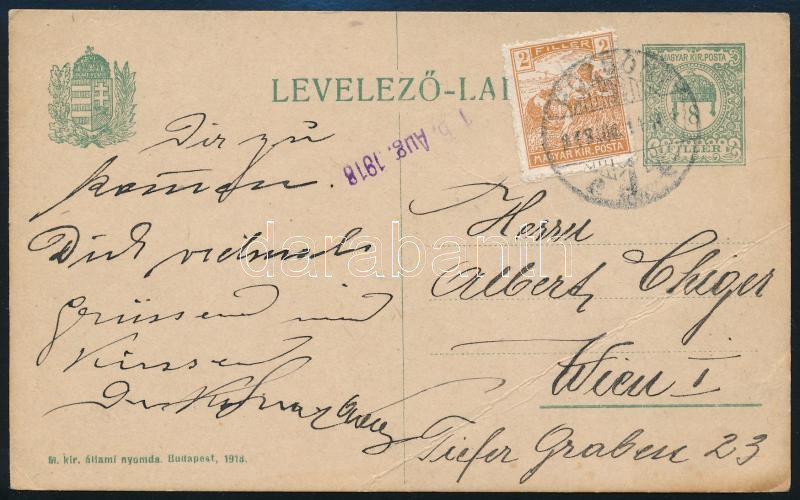 LEVELEZŐ-LA
2
FILLER
MAGYAR KIR. POSTA
MAGYAR KIR. POSTA
FILLER
Aug. 1918
Dir zu
kommen.
Dich vielmals
Grüssend und
Küssend
Herrn
Albert Chiger
Wien I
Tiefer Graben 23
darabanth
M. kir. állami nyomda. Budapest, 1918.